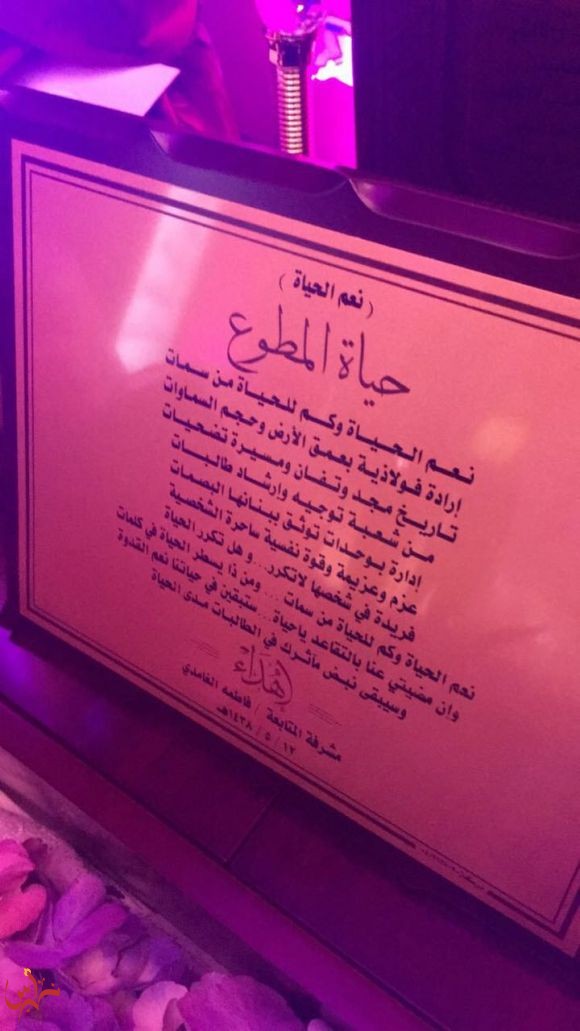 ( نعم الحياة )
حياة المطوع
نعم الحياة وكم للحياة من سمات
إرادة فولاذية بعمق الأرض وحجم السماوات
تاريخ مجد وتفان ومسيرة تضحيات
من شعبة توجيه وارشاد طالبات
إدارة بوحدات توثق ببنانها البصمات
عزم وعزيمة وقوة نفسية ساحرة الشخصية
فريدة في شخصها لاتكرر... و هل تكرر الحياة
نعم الحياة وكم للحياة من سمات ... ومن ذا يسطر الحياة في كلمات
وان مضيتي عنا بالتقاعد ياحياة... ستبقين في حياتنا نعم القدوة
وسيبقى نبض مآثرك في الطالبات مدى الحياة
إهداء
مشرفة المتابعة / فاطمه الغامدي
١٢ / ٥ / ١٤٣٨هـ